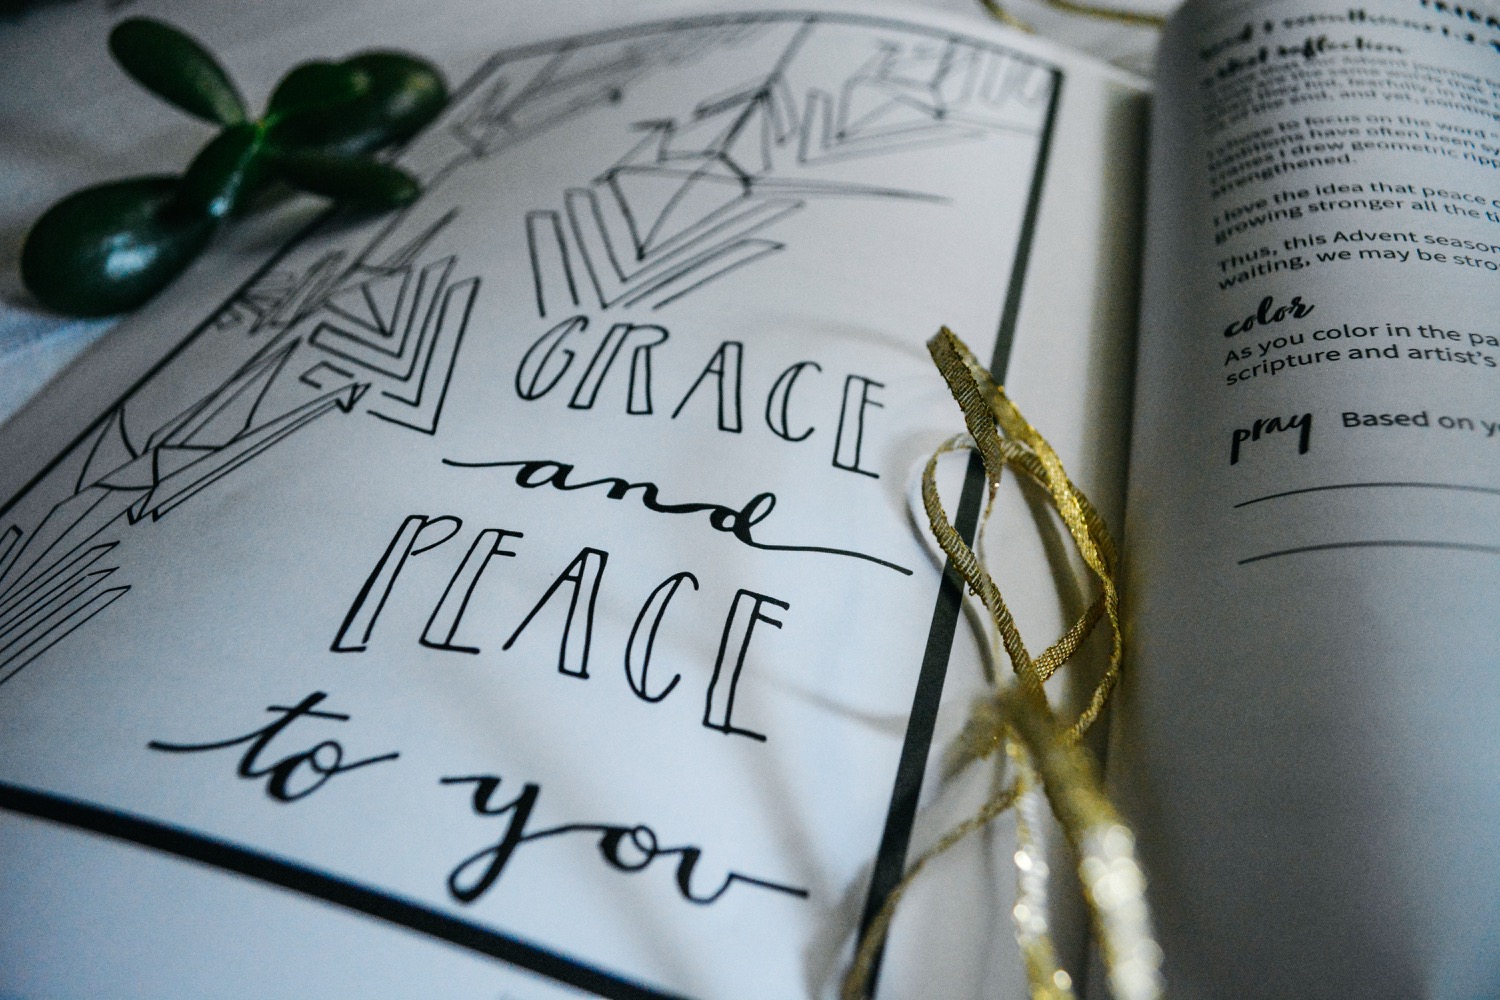 GRACE
and
PEACE
to you
this Advent journey
are the same words
the end, and yet,
to focus on the word
have often been
I drew geometric
strengthened.
I love the idea that peace
growing stronger all the
Thus, this Advent season
waiting, we may be
color
As you color in the
scripture and artist's
pray Based on